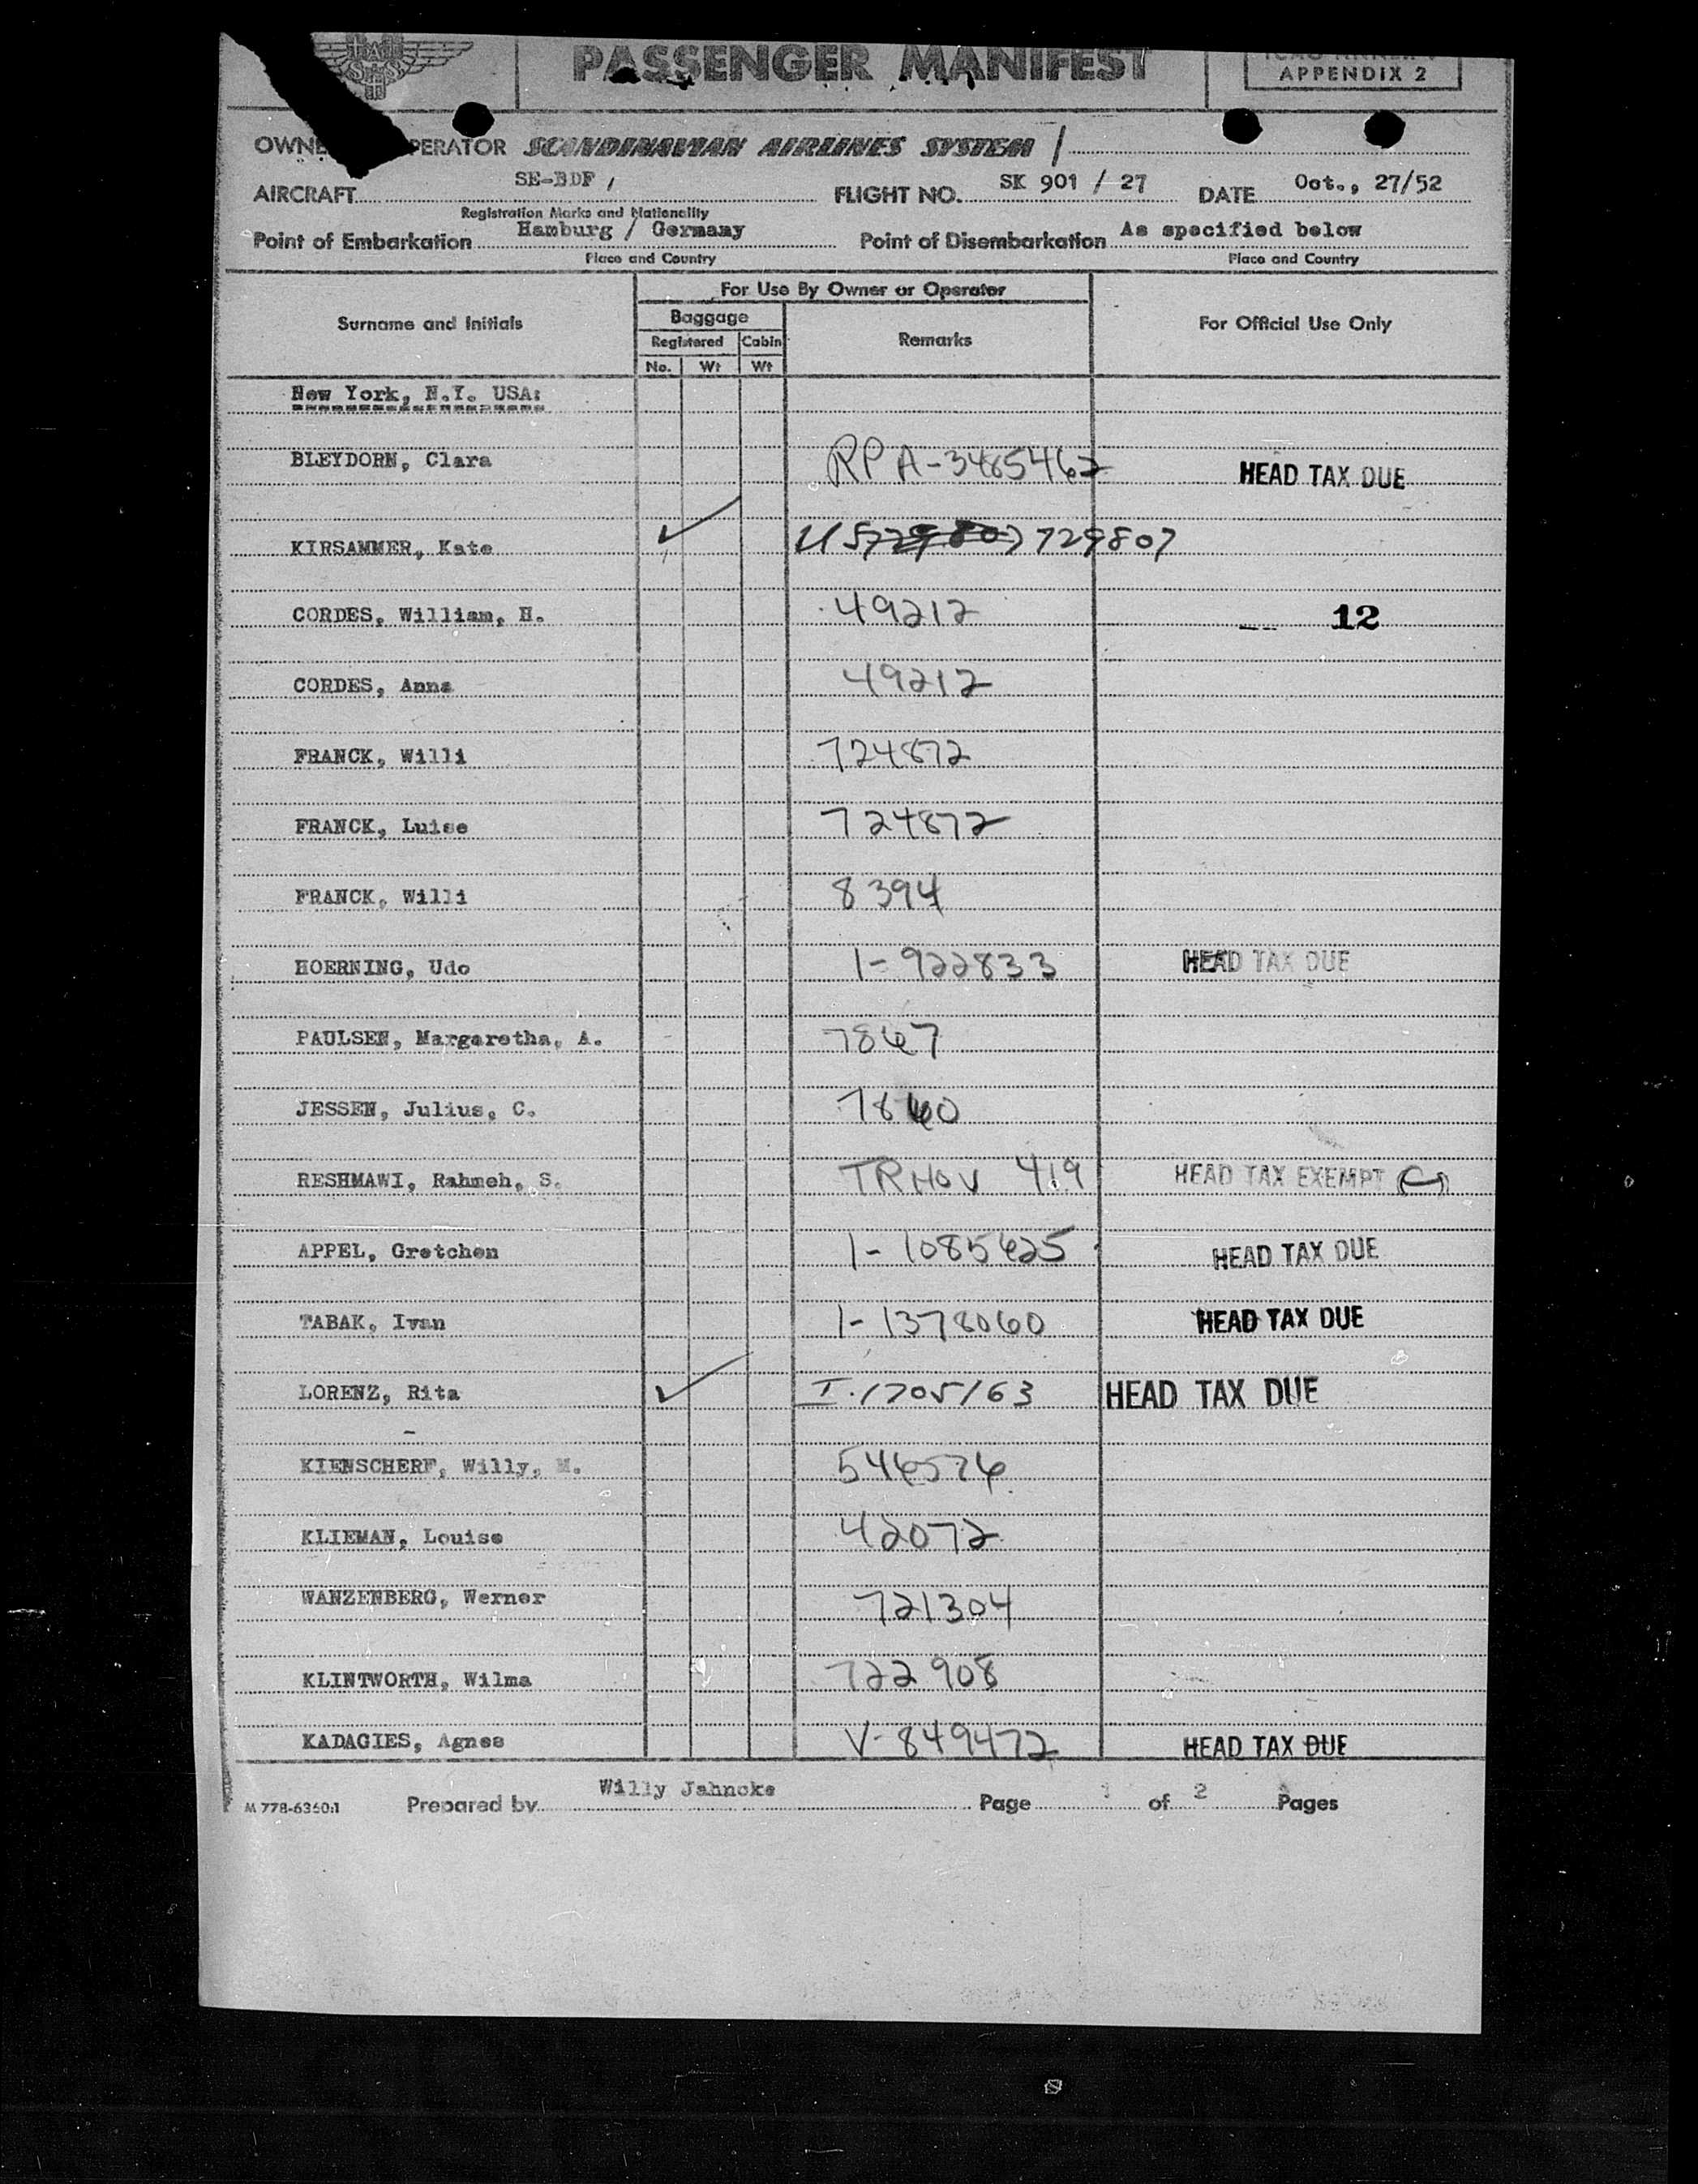 PASSENGER MANIFEST
APPENDIX 2
OWNE PERATOR SCANDINAVIAN AIRLINES SYSTEM /
AIRCRAFT SE-BDF / FLIGHT NO. SK 901 / 27 DATE Oct., 27/52
Registration Marks and Nationality
Point of Embarkation Hamburg / Germany Point of Disembarkation As specified below
Place and Country Place and Country
For Use By Owner or Operator
Surname and Initials Baggage Remarks For Official Use Only
Registered Cabin
No. Wt Wt
New York, N.Y. USA:
BLEYDORN, Clara RP A-3485462 HEAD TAX DUE
KIRSAMMER, Kate ✓ US 729807 729807
CORDES, William, H. 49212 12
CORDES, Anna 49212
FRANCK, Willi 724872
FRANCK, Luise 724872
FRANCK, Willi 8394
HOERNING, Udo 1-922833 HEAD TAX DUE
PAULSEN, Margaretha, A. 7867
JESSEN, Julius, C. 7860
RESHMAWI, Rahmeh, S. TR HOV 419 HEAD TAX EXEMPT
APPEL, Gretchen 1-1085625 HEAD TAX DUE
TABAK, Ivan 1-1378060 HEAD TAX DUE
LORENZ, Rita ✓ I.1705163 HEAD TAX DUE
KIENSCHERF, Willy, M. 546576
KLIEMAN, Louise 42072
WANZENBERG, Werner 721304
KLINTWORTH, Wilma 722908
KADAGIES, Agnes V-849472 HEAD TAX DUE
M 778-6360:1 Prepared by Willy Jahncke Page 1 of 2 Pages